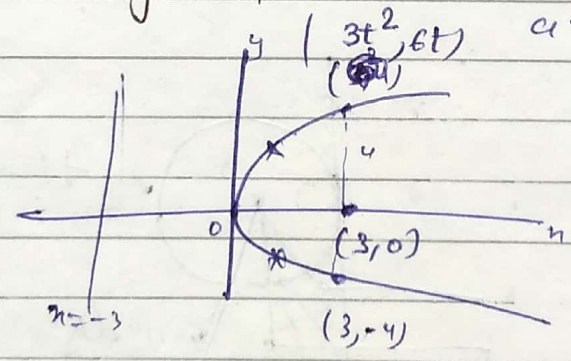 y
(3t², 6t)
a
4)
4
0
(3, 0)
x
x = -3
(3, -4)